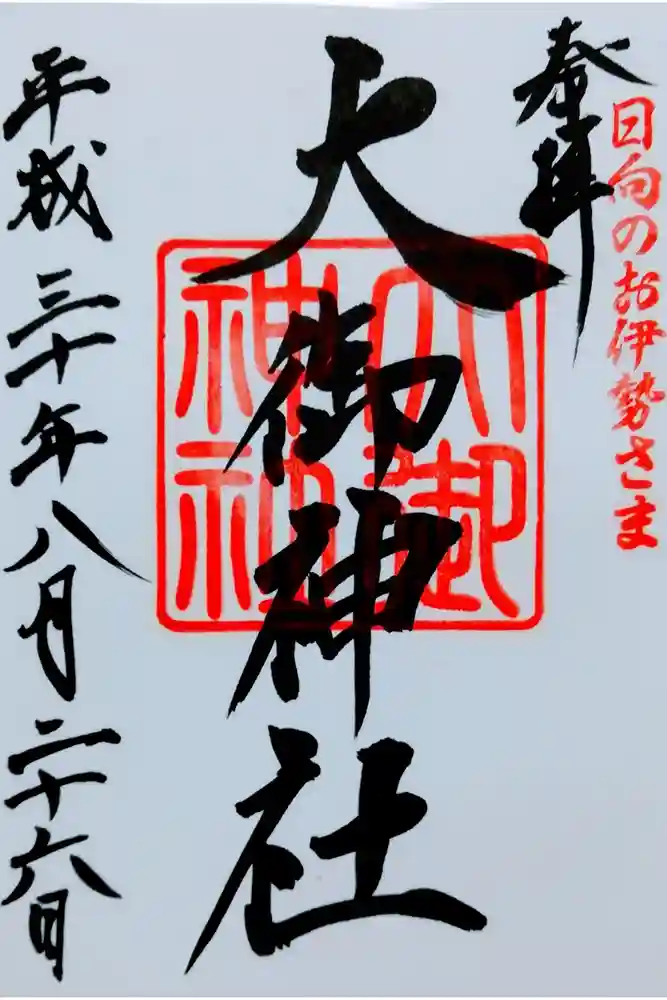 日向のお伊勢さま
奉拝
大御神社
大御
神社
平成三十年八月二十六日